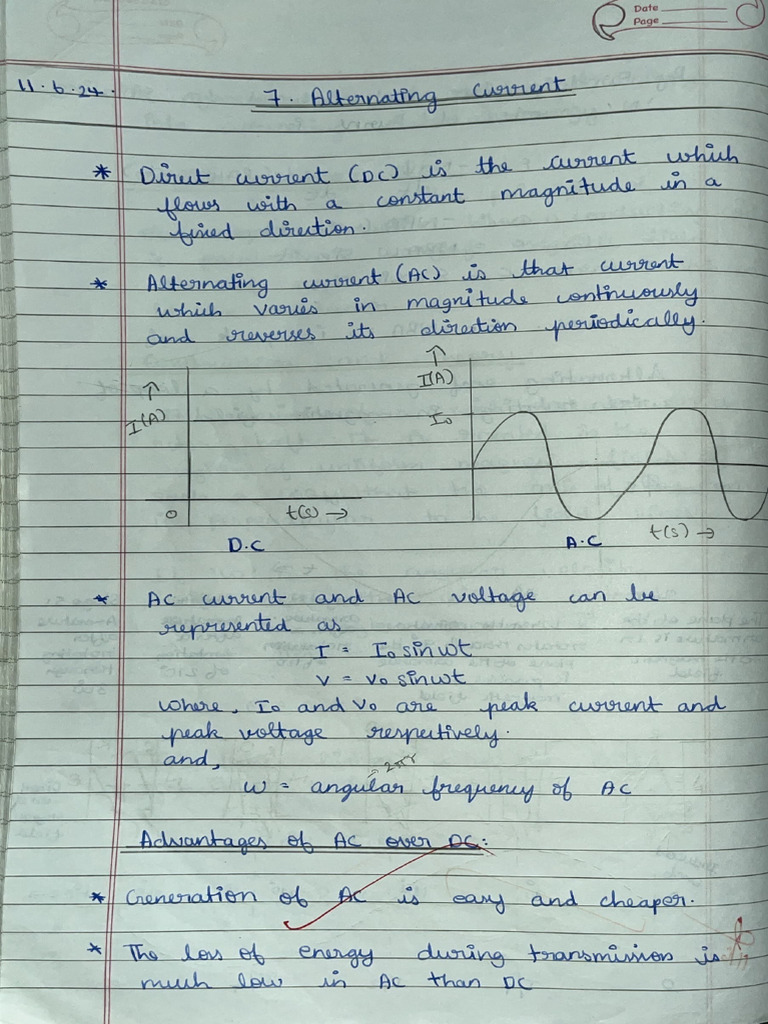 Date
Page
11.6.24.
7. Alternating Current
* Direct current (DC) is the current which
flows with a constant magnitude in a
fixed direction.
* Alternating current (AC) is that current
which varies in magnitude continuously
and reverses its direction periodically.
↑ I(A)
↑ I(A)
I₀
0 t(s) →
t(s) →
D.C
A.C
* AC current and AC voltage can be
represented as
I = I₀ sin wt
V = V₀ sin wt
where, I₀ and V₀ are peak current and
peak voltage respectively.
and,
w = angular frequency of AC
Advantages of AC over DC:
* Generation of AC is easy and cheaper.
* The loss of energy during transmission is
much low in AC than DC